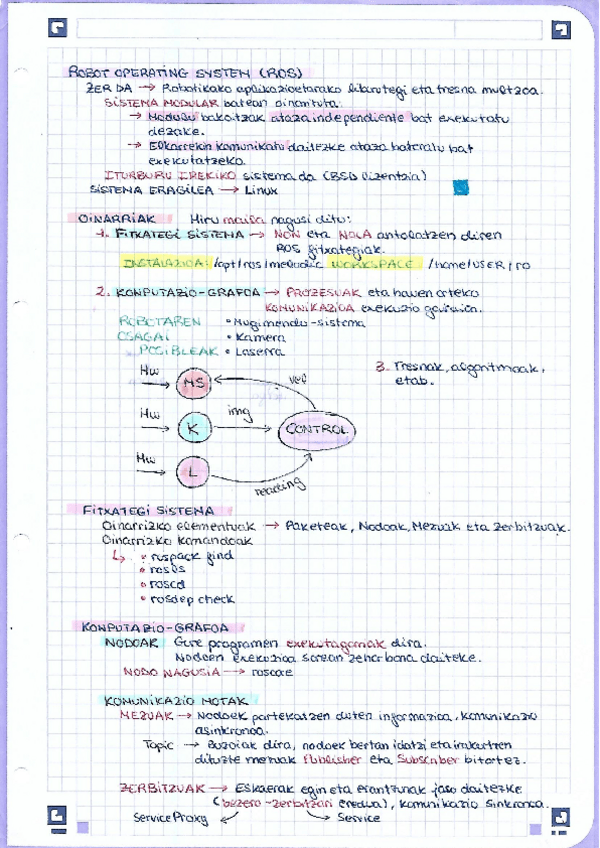 ROBOT OPERATING SYSTEM (ROS)
ZER DA → Robotikako aplikazioetarako liburutegi eta tresna multzoa.
SISTEMA MODULAR batean oinarrituta.
→ Modulu bakoitzak ataza independiente bat exekutatu
dezake.
→ Elkarrekin komunikatu daitezke ataza bateratu bat
exekutatzeko.
ITURBURU IREKIKO sistema da (BSD lizentzia)
SISTEMA ERAGILEA → Linux
OINARRIAK Hiru maila nagusi ditu:
1. FITXATEGI SISTEMA → NON eta NOLA antolatzen diren
ROS fitxategiak.
INSTALAZIOA: /opt/ros/melodic WORKSPACE /home/USER/ro
2. KONPUTAZIO-GRAFOA → PROZESUAK eta hauen arteko
KOMUNIKAZIOA exekuzio garaian.
ROBOTAREN • Mugimendu-sistema
OSAGAI • Kamera
POSIBLEAK • Laserra
3. Tresnak, algoritmoak,
etab.
Hw MS vel
Hw K img CONTROL
Hw L reading
FITXATEGI SISTEMA
Oinarrizko elementuak → Paketeak, Nodoak, Mezuak eta Zerbitzuak.
Oinarrizko komandoak
↳ • rospack find
• rosls
• roscd
• rosdep check
KONPUTAZIO-GRAFOA
NODOAK Gure programen exekutagarriak dira.
Nodoen exekuzioa sarean zehar bana daiteke.
NODO NAGUSIA → roscore
KOMUNIKAZIO MOTAK
MEZUAK → Nodoek partekatzen duten informazioa, komunikazio
asinkronoa.
Topic → Buzoiak dira, nodoek bertan idatzi eta irakurtzen
dituzte mezuak Publisher eta Subscriber bitartez.
ZERBITZUAK → Eskaerak egin eta erantzunak jaso daitezke
(bezero-zerbitzari eredua), komunikazio sinkronoa.
ServiceProxy ↙ ↘ Service